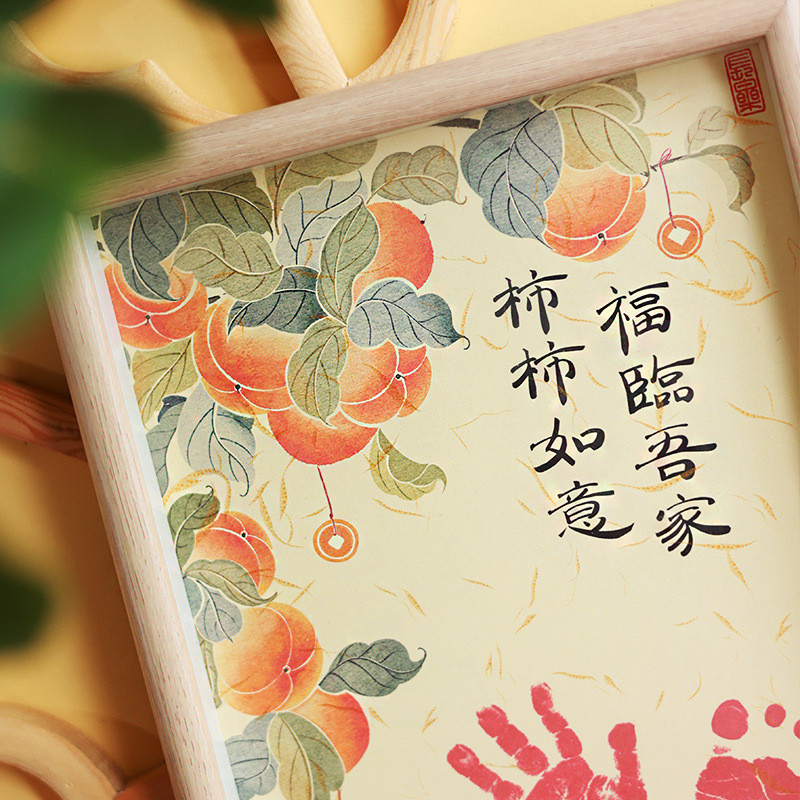 福臨吾家
柿柿如意